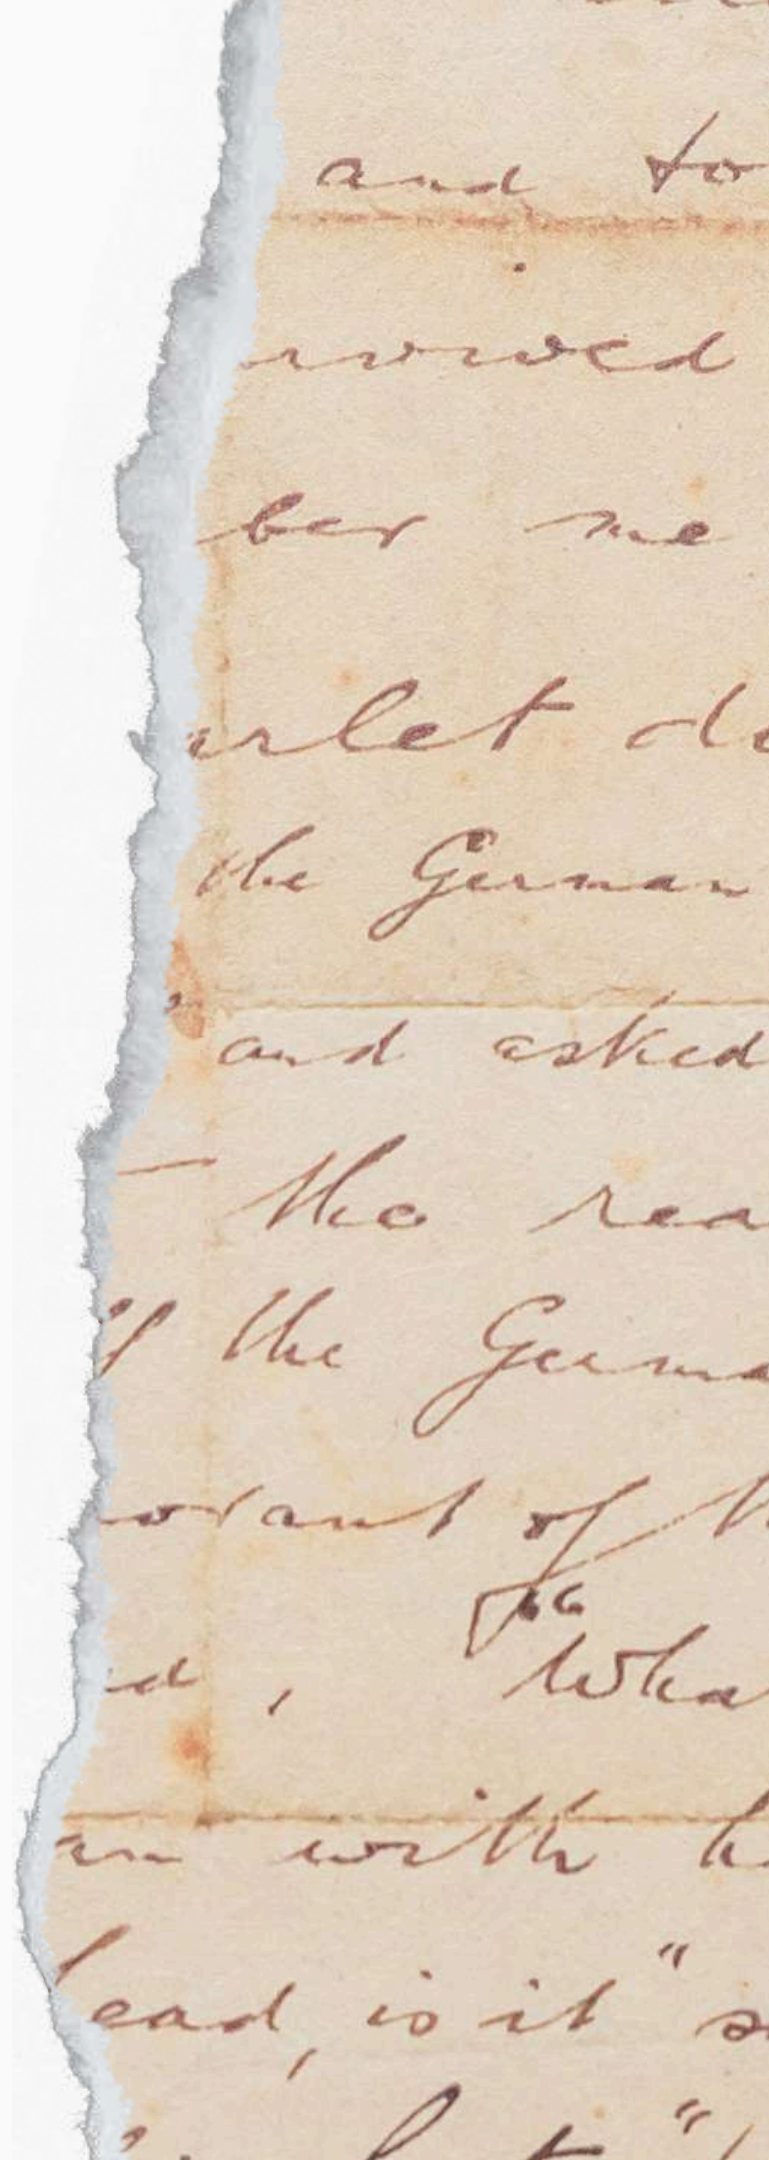 and to
rvived
ber me
rlet d
the German
and asked
the rea
of the Germa
norant of th
d, "Wha
an with h
ead, is it" s